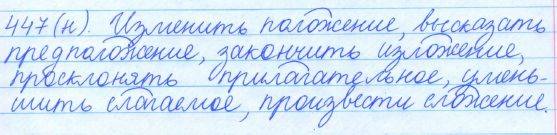 447(н). Изменить положение, высказать
предположение, закончить изложение,
просклонять прилагательное, умень-
шить слагаемое, произвести сложение.